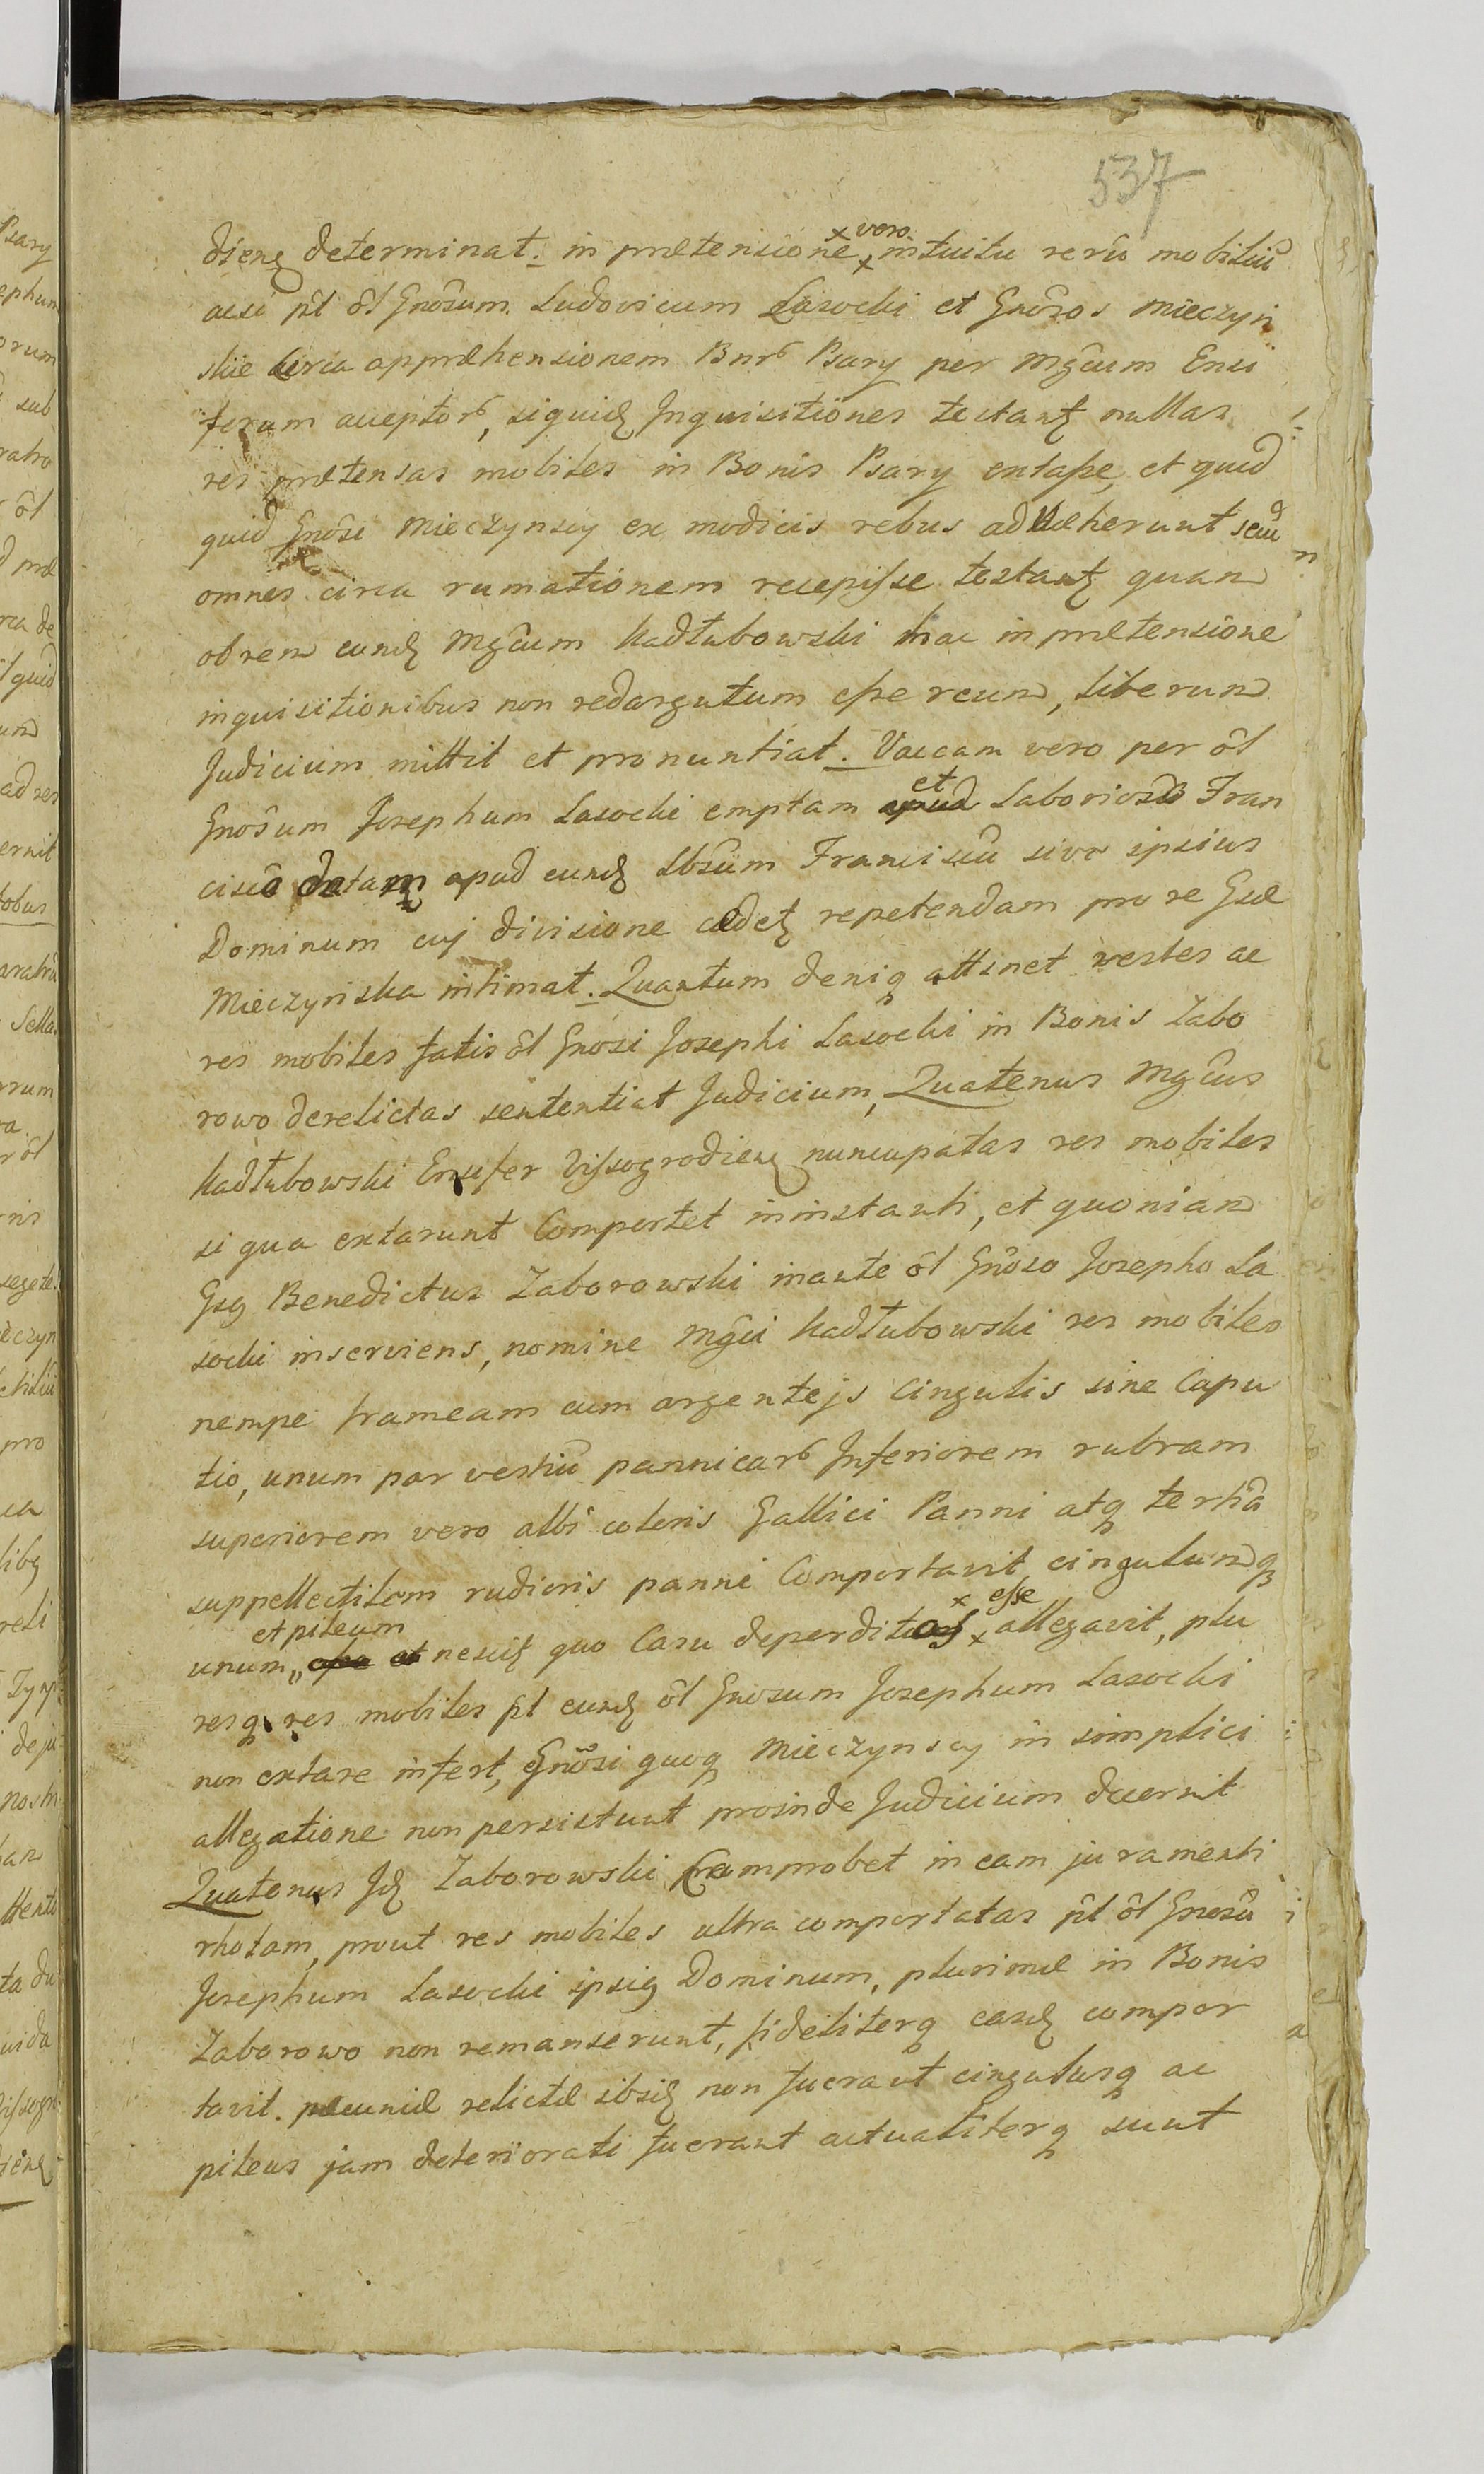 537
dienꝫ determinat. in prætensione × vero × intuitu rerū mobiliū
acsi pt̂ ôl Gnôsum Ludovicum Lasocki et Gnôsos Mieczyń
skie circa appræhensionem Bnrô Psary per Mgĉum Ensi
ferum acceptorô, siquidꝫ Inquisitiones testantꝫ nullas
res prætensas mobiles in Bonis Psary extasse, et quid
quid Gnôsi Mieczynscy ex modicis rebus advæherunt secū
omnes circa rumationem recepisse testantꝫ quam
obrem eundꝫ Mgĉum Kadłubowski hac in prætensione
inquisitionibus non redargutum esse reum, liberum
Judicium mittit et pronuntiat. Vaccam vero per ôl
Gnôsum Josephum Lasocki emptam et Laborioso Fran
cisco datam apud eundꝫ Lbsûm Franciscū sive ipsius
Dominum cuj divisione cædetꝫ repetendam pro re Gsæ
Mieczyńska intimat. Quantum deniqꝫ attinet vestes ac
res mobiles fatis ôl Gnôsi Josephi Lasocki in Bonis Zabo
rowo derelictas sententiat Judicium, Quatenus Mgĉus
Kadłubowski Ensifer Vissogrodienꝫ nuncupatas res mobiles
si qua extarunt Comportet ininstanti, et quoniam
Gsꝫ Benedictus Zaborowski inante ôl Gnôso Josepho La
socki inserviens, nomine Mgĉi Kadłubowski res mobiles
nempe frameam cum argentejs cingulis sine Capu
tio, unum par vestiū pannicarô Inferiorem rubram
superiorem vero albi coloris Gallici Panni atqꝫ tertiâ
suppellectilem rudioris panni Comportavit, cingulumqꝫ
unum, et pileum nescitꝫ quo Casu deperditos × esse × allegavit, plu
resqꝫ res mobiles pt̂ eundꝫ ôl Gnosum Josephum Lasocki
non extare infert, Gnôsi quoqꝫ Mieczynscy in simplici
allegatione non persistunt proinde Judicium decernit
Quatenus Idꝫ Zaborowski comprobet in eam juramenti
rhotam, prout res mobiles ultra comportatas pt̂ ôl Gnosû
Josephum Lasocki ipsiꝫ Dominum, plurimæ in Bonis
Zaborowo non remanserunt, fideliterqꝫ easdꝫ compor
tavit. pæcuniæ relictæ ibsiꝫ non fuerant cingulusqꝫ ac
pileus jam deteriorati fuerant actualiterqꝫ sunt